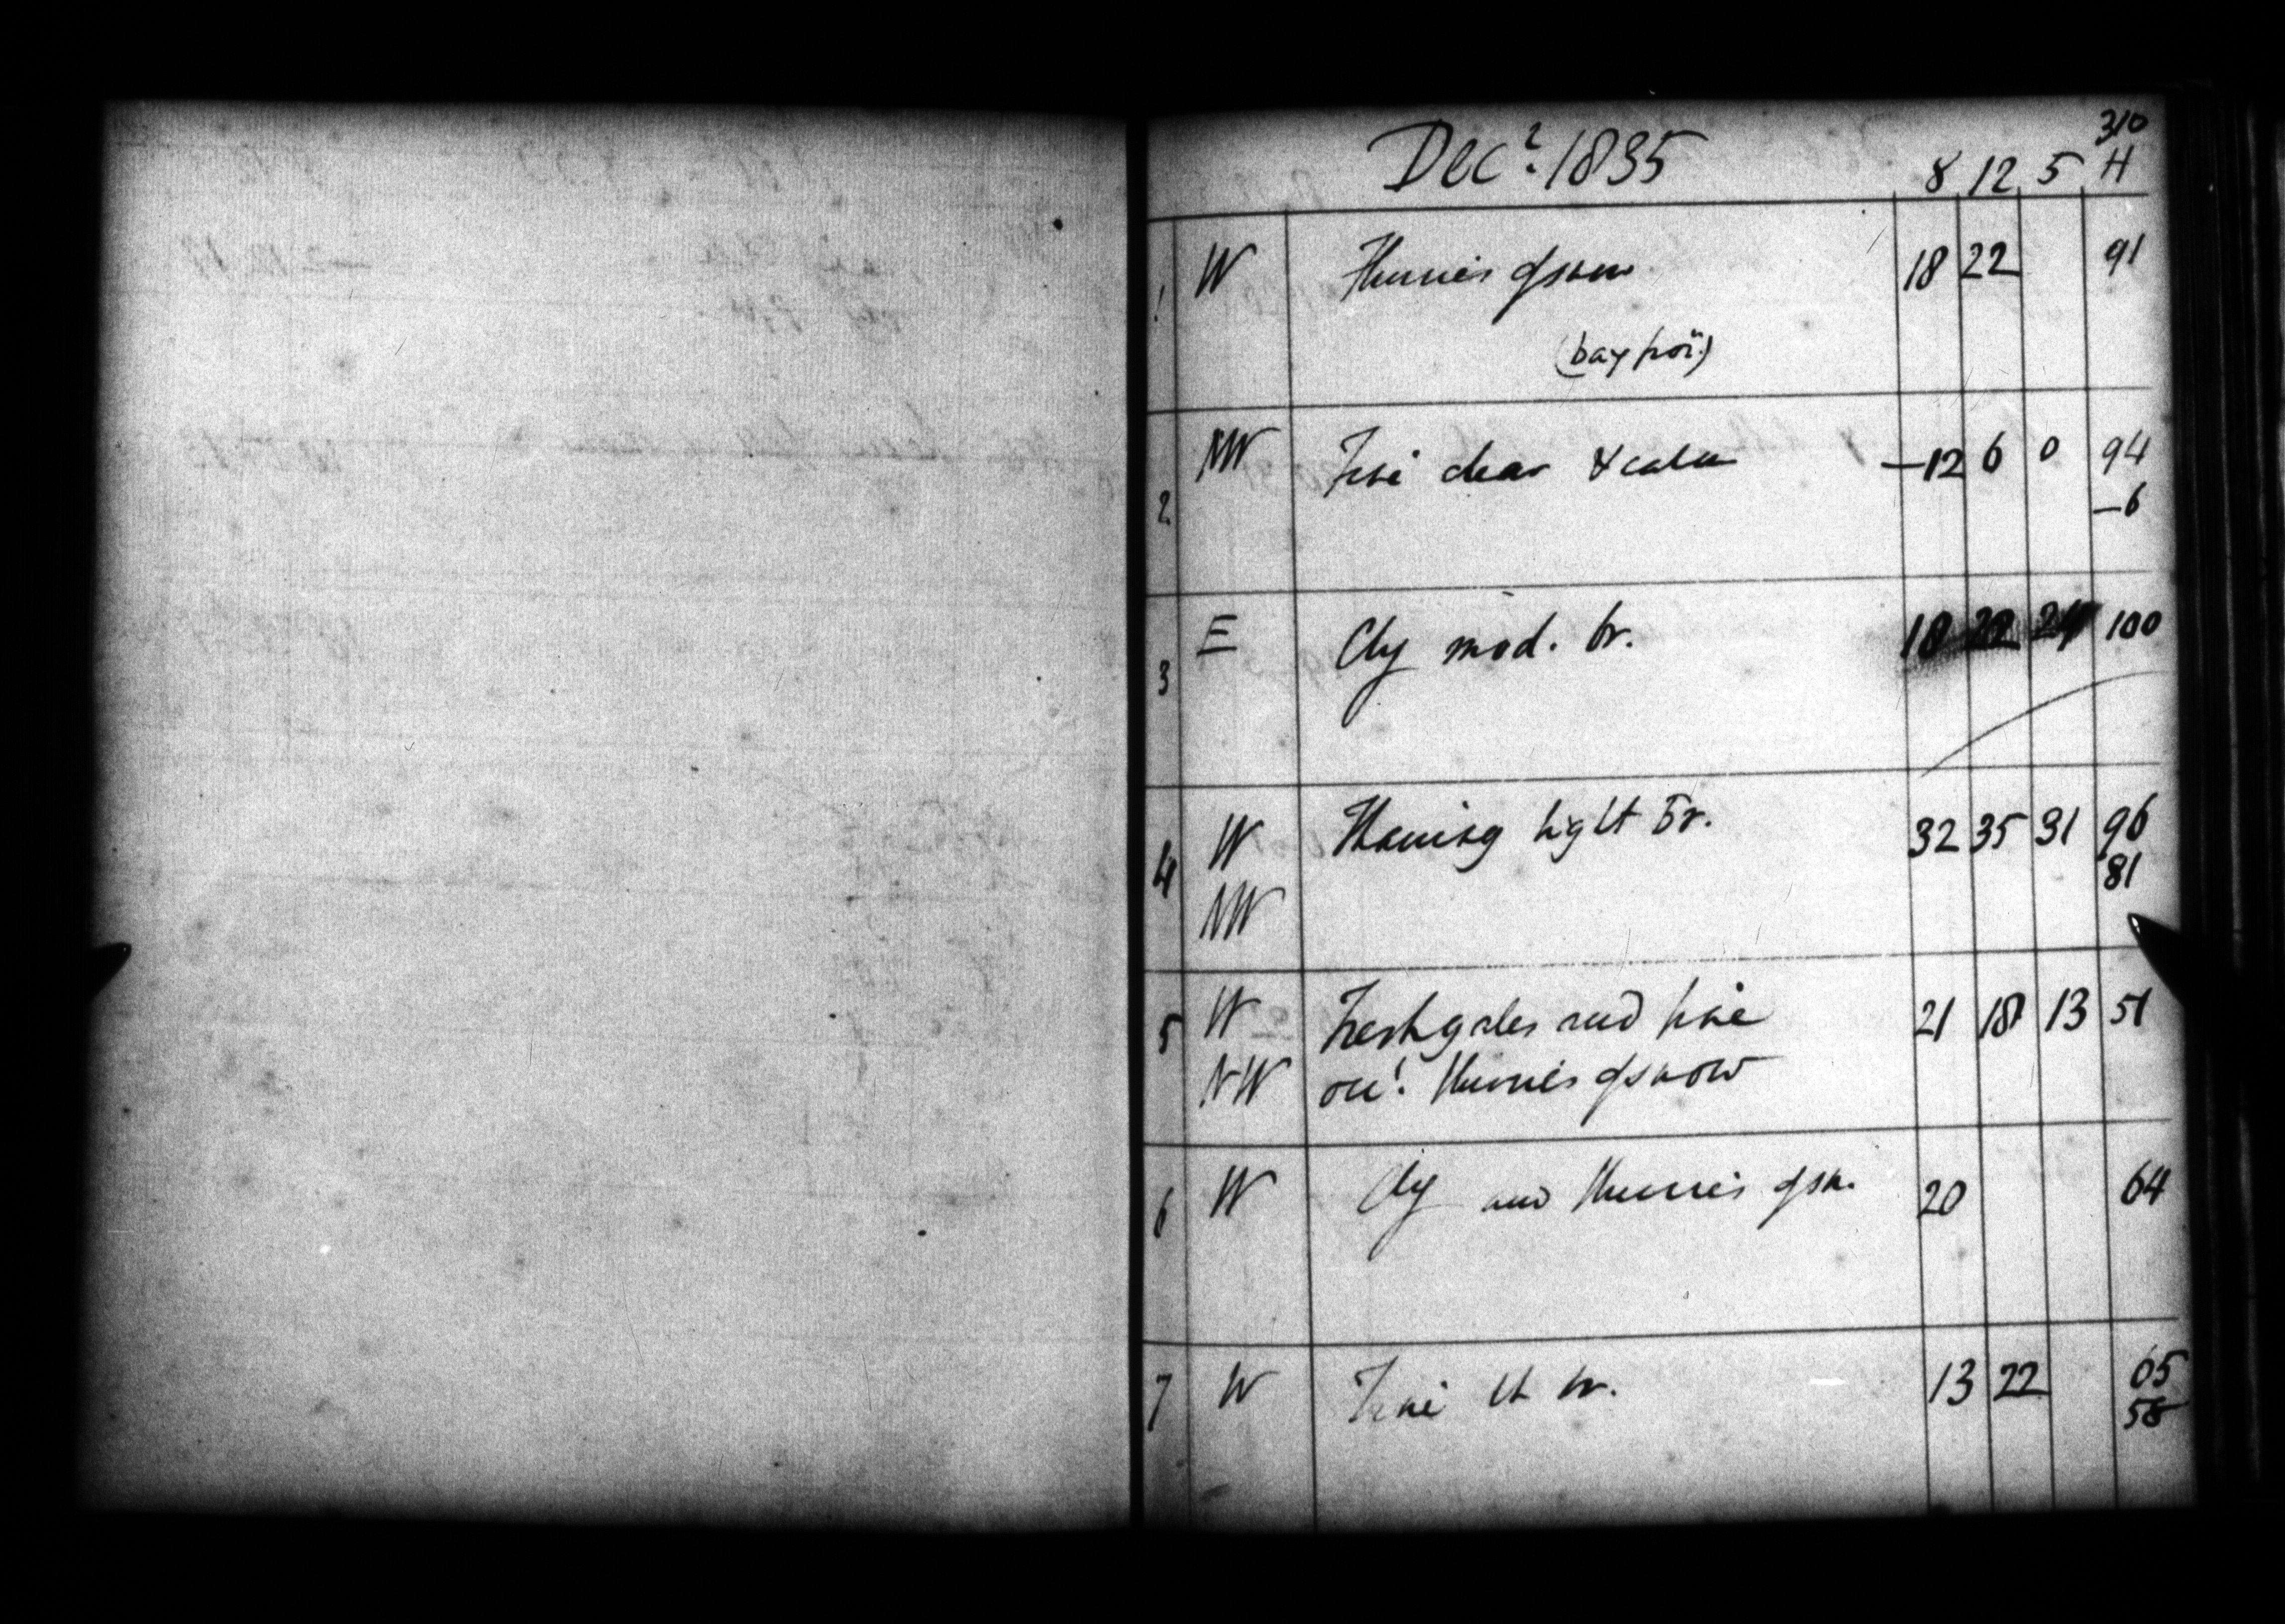 310
Decr. 1835 8 12 5 H
1 W Flurries of snow 18 22 91
(bay froz.)
2 NW Fine clear & calm —12 6 0 94
—6
3 E Cly mod. br. 18 22 24 100
4 W Thawing light br. 32 35 31 96
81
NW
5 W Fresh gales and fine 21 18 13 51
NW occ! flurries of snow
6 W Cly and flurries of sn. 20 64
7 W Fine lt br. 13 22 65
58